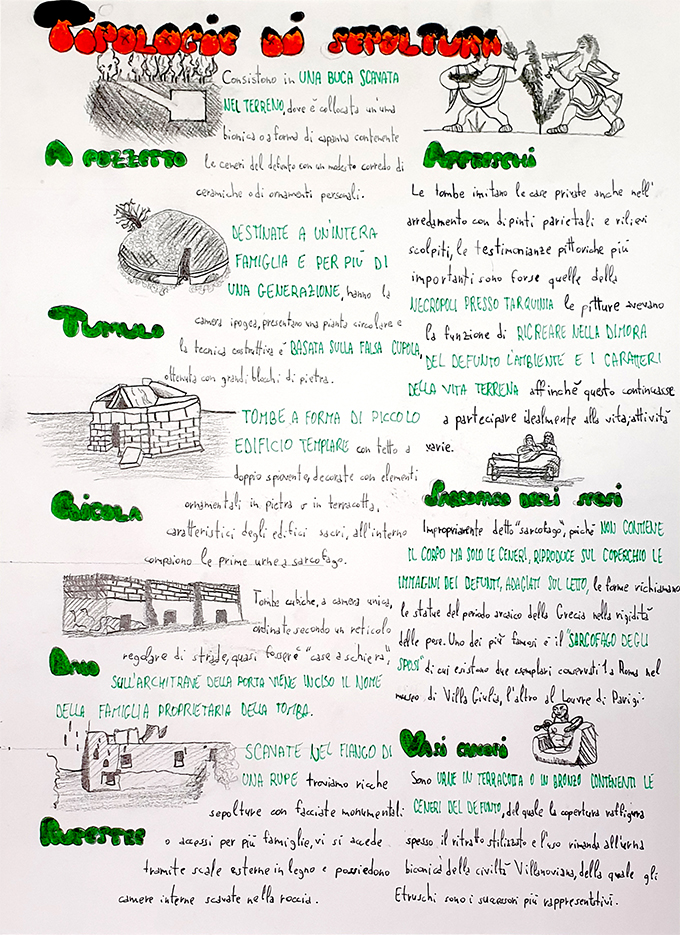 TIPOLOGIE DI SEPOLTURA
A POZZETTO
Consistono in UNA BUCA SCAVATA
NEL TERRENO, dove è collocata un'urna
bionica o a forma di capanna contenente
le ceneri del defunto con un modesto corredo di
ceramiche o di ornamenti personali.
TUMULO
DESTINATE A UN'INTERA
FAMIGLIA E PER PIÙ DI
UNA GENERAZIONE, hanno la
camera ipogea, presentano una pianta circolare e
la tecnica costruttiva è BASATA SULLA FALSA CUPOLA,
ottenuta con grandi blocchi di pietra.
EDICOLA
TOMBE A FORMA DI PICCOLO
EDIFICIO TEMPLARE con tetto a
doppio spiovente, decorate con elementi
ornamentali in pietra o in terracotta,
caratteristici degli edifici sacri, all'interno
compaiono le prime urne a sarcofago.
DADO
Tombe cubiche, a camera unica,
ordinate secondo un reticolo
regolare di strade, quasi fosser "case a schiera",
SULL'ARCHITRAVE DELLA PORTA VIENE INCISO IL NOME
DELLA FAMIGLIA PROPRIETARIA DELLA TOMBA.
RUPESTRE
SCAVATE NEL FIANCO DI
UNA RUPE troviamo ricche
sepolture con facciate monumentali
o accessi per più famiglie, vi si accede
tramite scale esterne in legno e possiedono
camere interne scavate nella roccia.
AFFRESCHI
Le tombe imitano le case private anche nell'
arredamento con dipinti parietali e rilievi
scolpiti, le testimonianze pittoriche più
importanti sono forse quelle della
NECROPOLI PRESSO TARQUINIA le pitture avevano
la funzione di RICREARE NELLA DIMORA
DEL DEFUNTO L'AMBIENTE E I CARATTERI
DELLA VITA TERRENA affinché questo continuasse
a partecipare idealmente alla vita, attività
varie.
SARCOFAGO DEGLI SPOSI
Impropriamente detto "sarcofago", poiché NON CONTIENE
IL CORPO MA SOLO LE CENERI, RIPRODUCE SUL COPERCHIO LE
IMMAGINI DEI DEFUNTI, ADAGIATI SUL LETTO, le forme richiamano
le statue del periodo arcaico della Grecia nella rigidità
delle pose. Uno dei più famosi è il "SARCOFAGO DEGLI
SPOSI" di cui esistono due esemplari conservati 1 a Roma nel
museo di Villa Giulia, l'altro al Louvre di Parigi.
VASI CANOPI
Sono URNE IN TERRACOTTA O IN BRONZO CONTENENTI LE
CENERI DEL DEFUNTO, del quale la copertura raffigura
spesso il ritratto stilizzato e l'uso rimanda all'urna
biconica della civiltà Villanoviana, della quale gli
Etruschi sono i successori più rappresentativi.